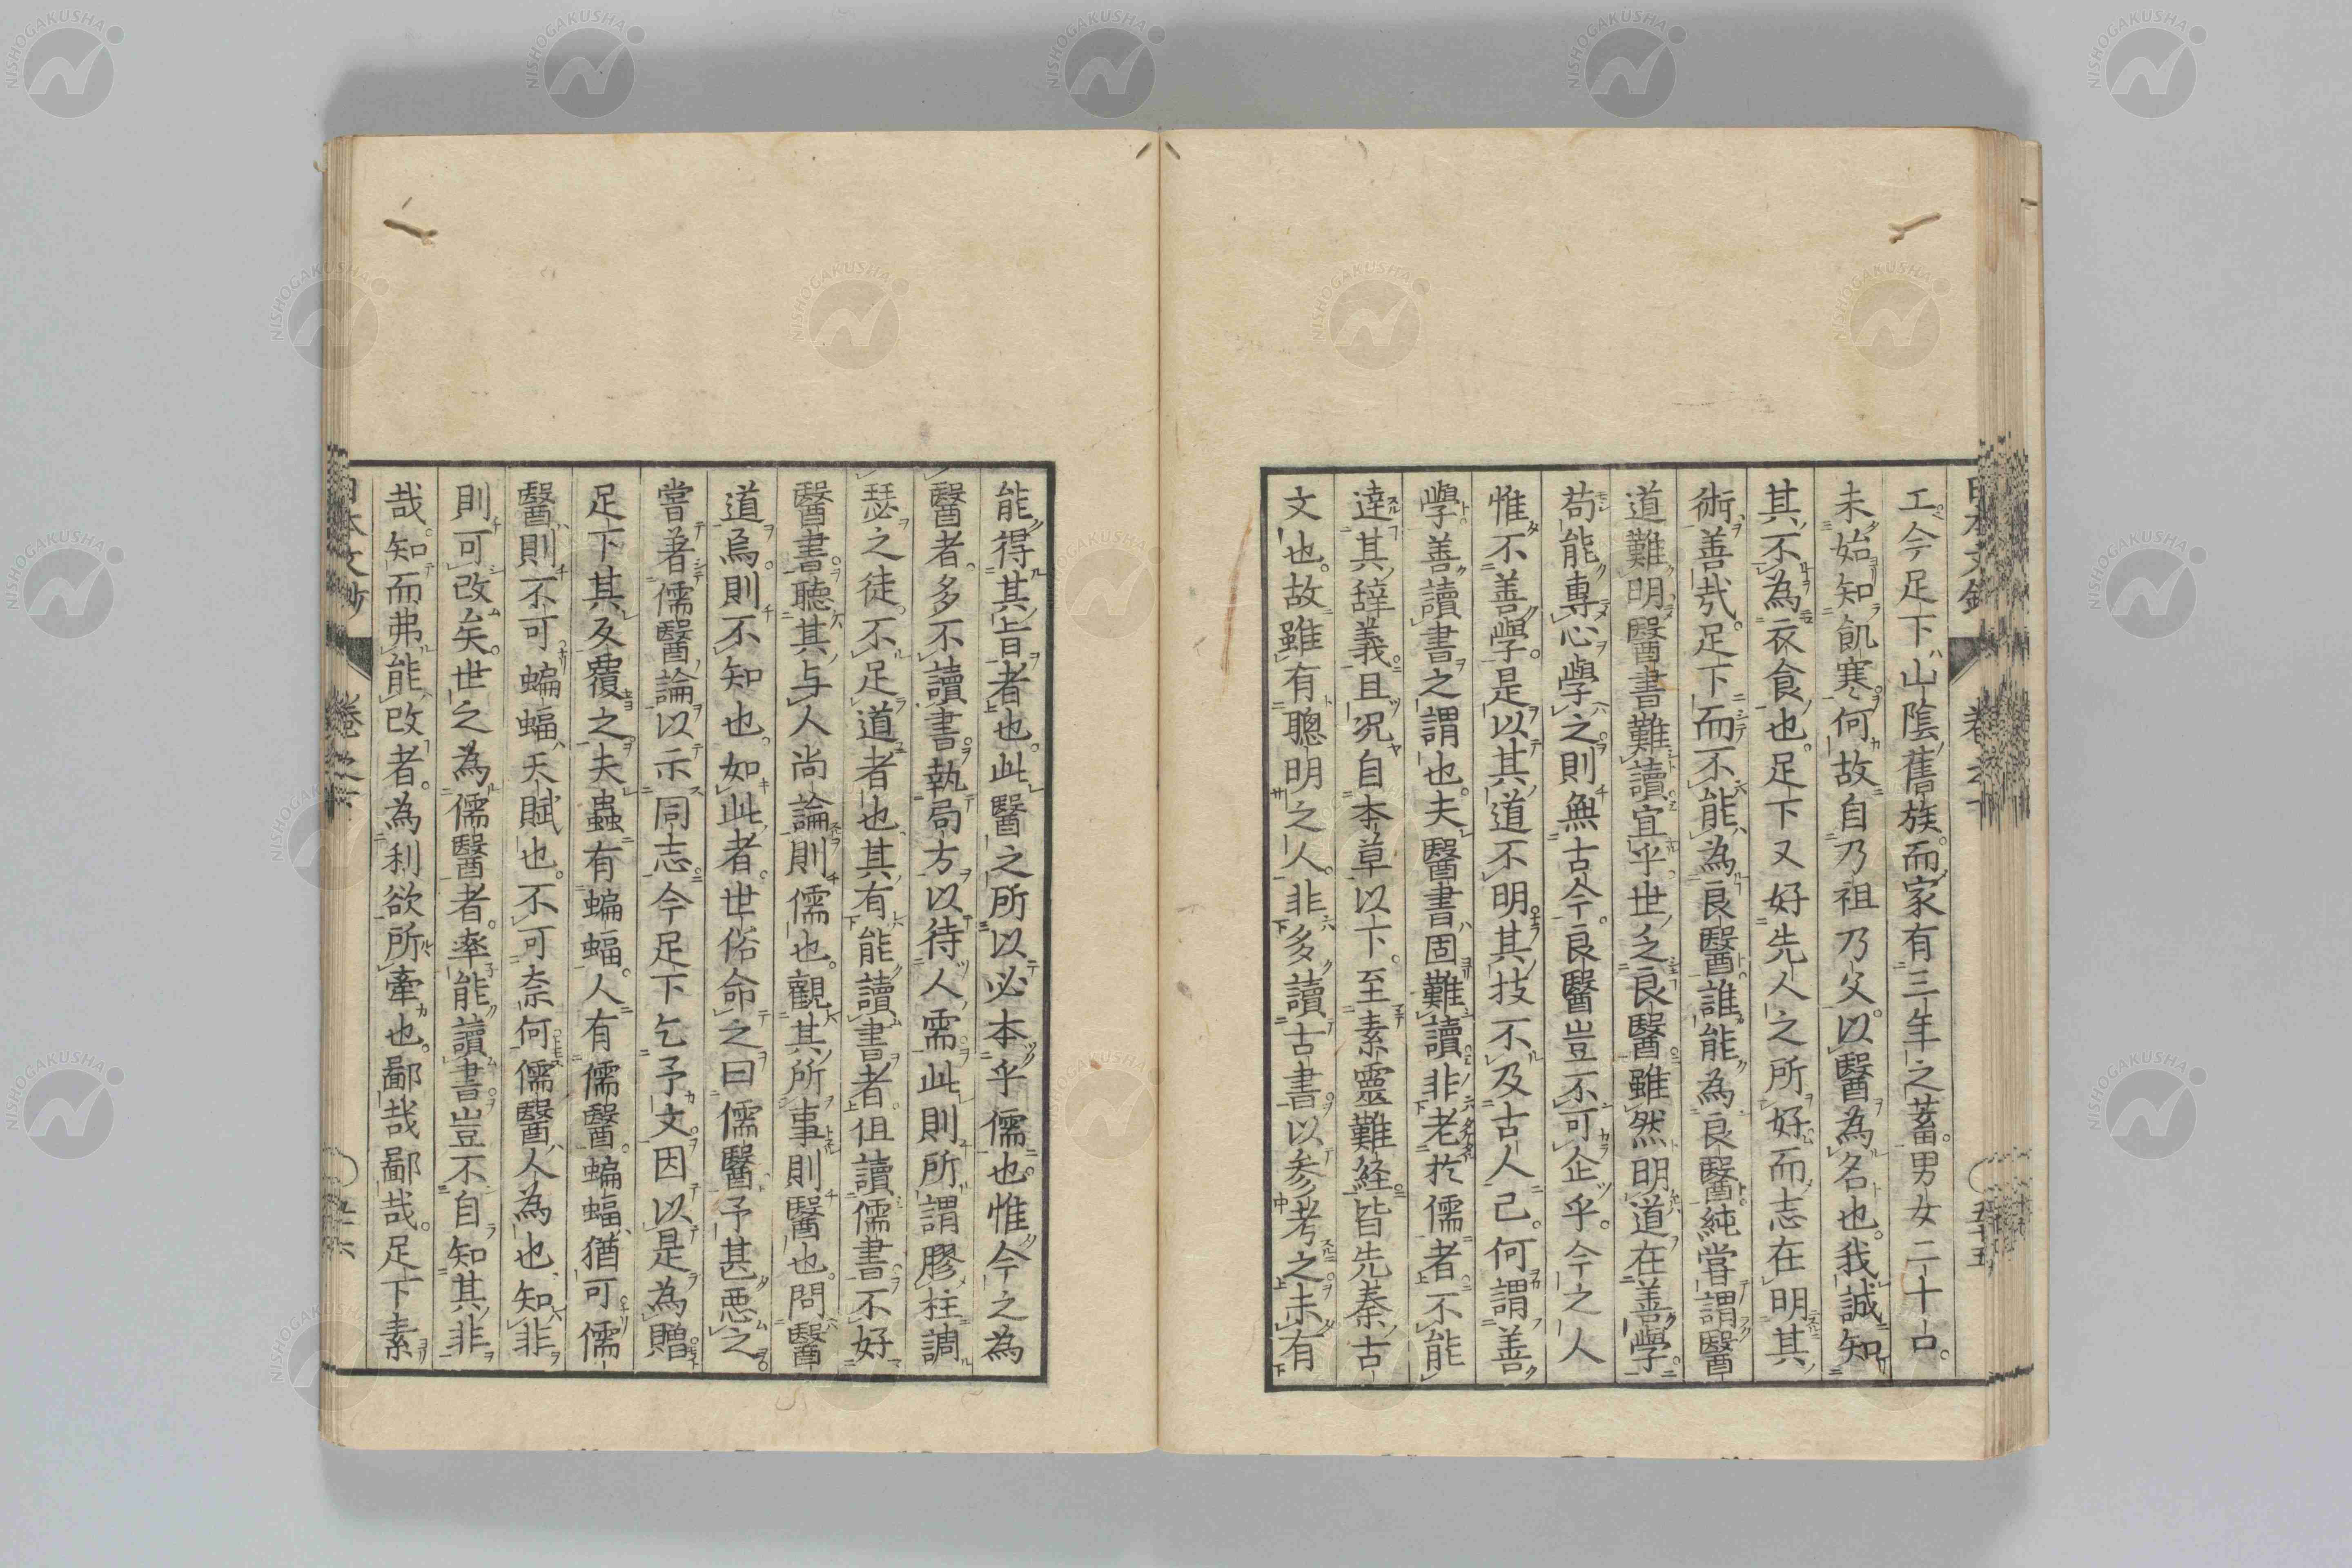 工今足下山陰舊族。而家有三年之蓄。男女二十口。
未始知飢寒。何故自乃祖乃父。以醫為名也。我誠知
其不為衣食也。足下又好先人之所好。而志在明其
術。善哉。足下而不能為良醫。誰能為良醫。純嘗謂醫
道難明。醫書難讀。宜乎世乏良醫。雖然明道在善學。
苟能專心學之。則無古今。良醫豈不可企乎。今之人
惟不善學。是以其道不明。其技不及古人已。何謂善
學。善讀書之謂也。夫醫書固難讀。非老於儒者。不能
達其辞義。且況自本草以下。至素靈難経。皆先秦古
文也。故雖有聰明之人。非多讀古書。以参考之。未有
能得其旨者也。此醫之所以必本乎儒也。惟今之為
醫者。多不讀書。執局方以待人需。此則所謂膠柱調
瑟之徒。不足道者也。其有能讀書者。徂讀儒書。不好
醫書。聽其与人尚論。則儒也。觀其所事。則醫也。問醫
道焉。則不知也。如此者。世俗命之曰儒醫。予甚悪之。
嘗著儒醫論。以示同志。今足下乞予文。因以是為贈。
足下其反覆之。夫蟲有蝙蝠。人有儒醫。蝙蝠猶可。儒
醫則不可。蝙蝠天賦也。不可奈何。儒醫人為也。知非
則可改矣。世之為儒醫者。率能讀書。豈不自知其非
哉。知而弗能改者。為利欲所牽也。鄙哉鄙哉。足下素
NISHOGAKUSHA